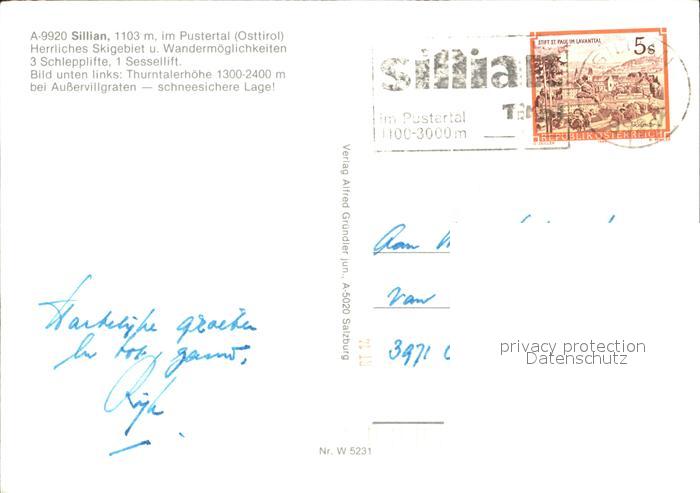 A-9920 Sillian, 1103 m, im Pustertal (Osttirol)
Herrliches Skigebiet u. Wandermöglichkeiten
3 Schlepplifte, 1 Sessellift.
Bild unten links: Thurntalerhöhe 1300-2400 m
bei Außervillgraten — schneesichere Lage!
sillian
im Pustertal
1100-3000 m
STIFT ST. PAUL IM LAVANTTAL
5s
REPUBLIK ÖSTERREICH
Verlag Alfred Gründler jun., A-5020 Salzburg
Aan
van
3971
Hartelijke groeten
en tot
privacy protection
Datenschutz
Nr. W 5231